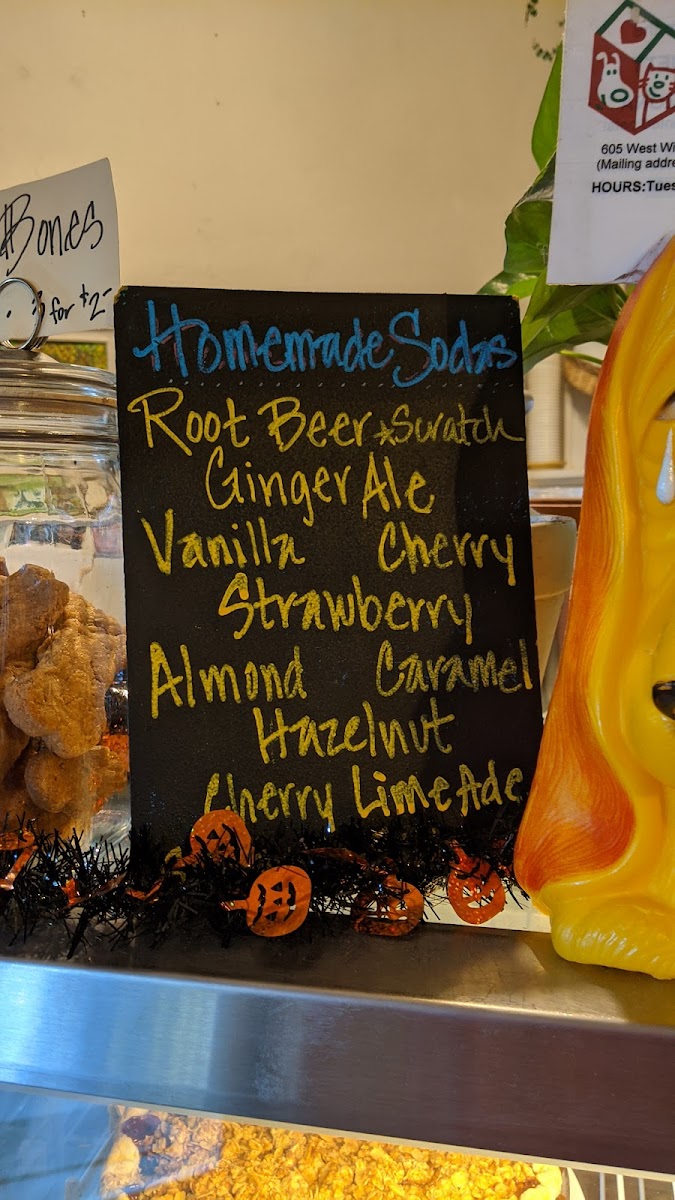 Bones
for $2-
Homemade Sodas
Root Beer *Scratch
Ginger Ale
Vanilla Cherry
Strawberry
Almond Caramel
Hazelnut
Cherry LimeAde
605 West
(Mailing
HOURS:Tues